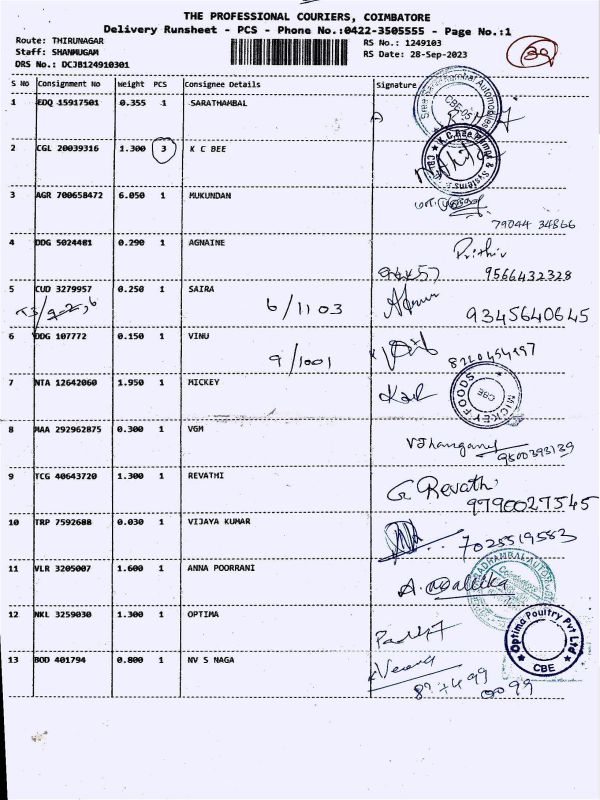 THE PROFESSIONAL COURIERS, COIMBATORE
Delivery Runsheet - PCS - Phone No.:0422-3505555 - Page No.:1
Route: THIRUNAGAR RS No.: 1249103
Staff: SHANMUGAM RS Date: 28-Sep-2023
DRS No.: DCJB124910301
S No Consignment No Weight PCS Consignee Details Signature
1 EDQ 15917501 0.355 1 SARATHAMBAL
2 CGL 20039316 1.300 3 K C BEE
3 AGR 700658472 6.050 1 MUKUNDAN
79044 34866
4 DDG 5024481 0.290 1 AGNAINE
9566432328
5 CUD 3279957 0.250 1 SAIRA
6/1103
9345640645
6 DDG 107772 0.150 1 VINU
9/1001
7 NTA 12642060 1.950 1 MICKEY
MICKEY FOODS CBE
8 MAA 292962875 0.300 1 VGM
9 TCG 40643720 1.300 1 REVATHI
G Revathi
9790027545
10 TRP 7592688 0.030 1 VIJAYA KUMAR
7025519583
11 VLR 3205007 1.600 1 ANNA POORRANI
A. Mallika
12 NKL 3259030 1.300 1 OPTIMA
Optima Poultry Pvt Ltd CBE
13 BOD 401794 0.800 1 NV S NAGA